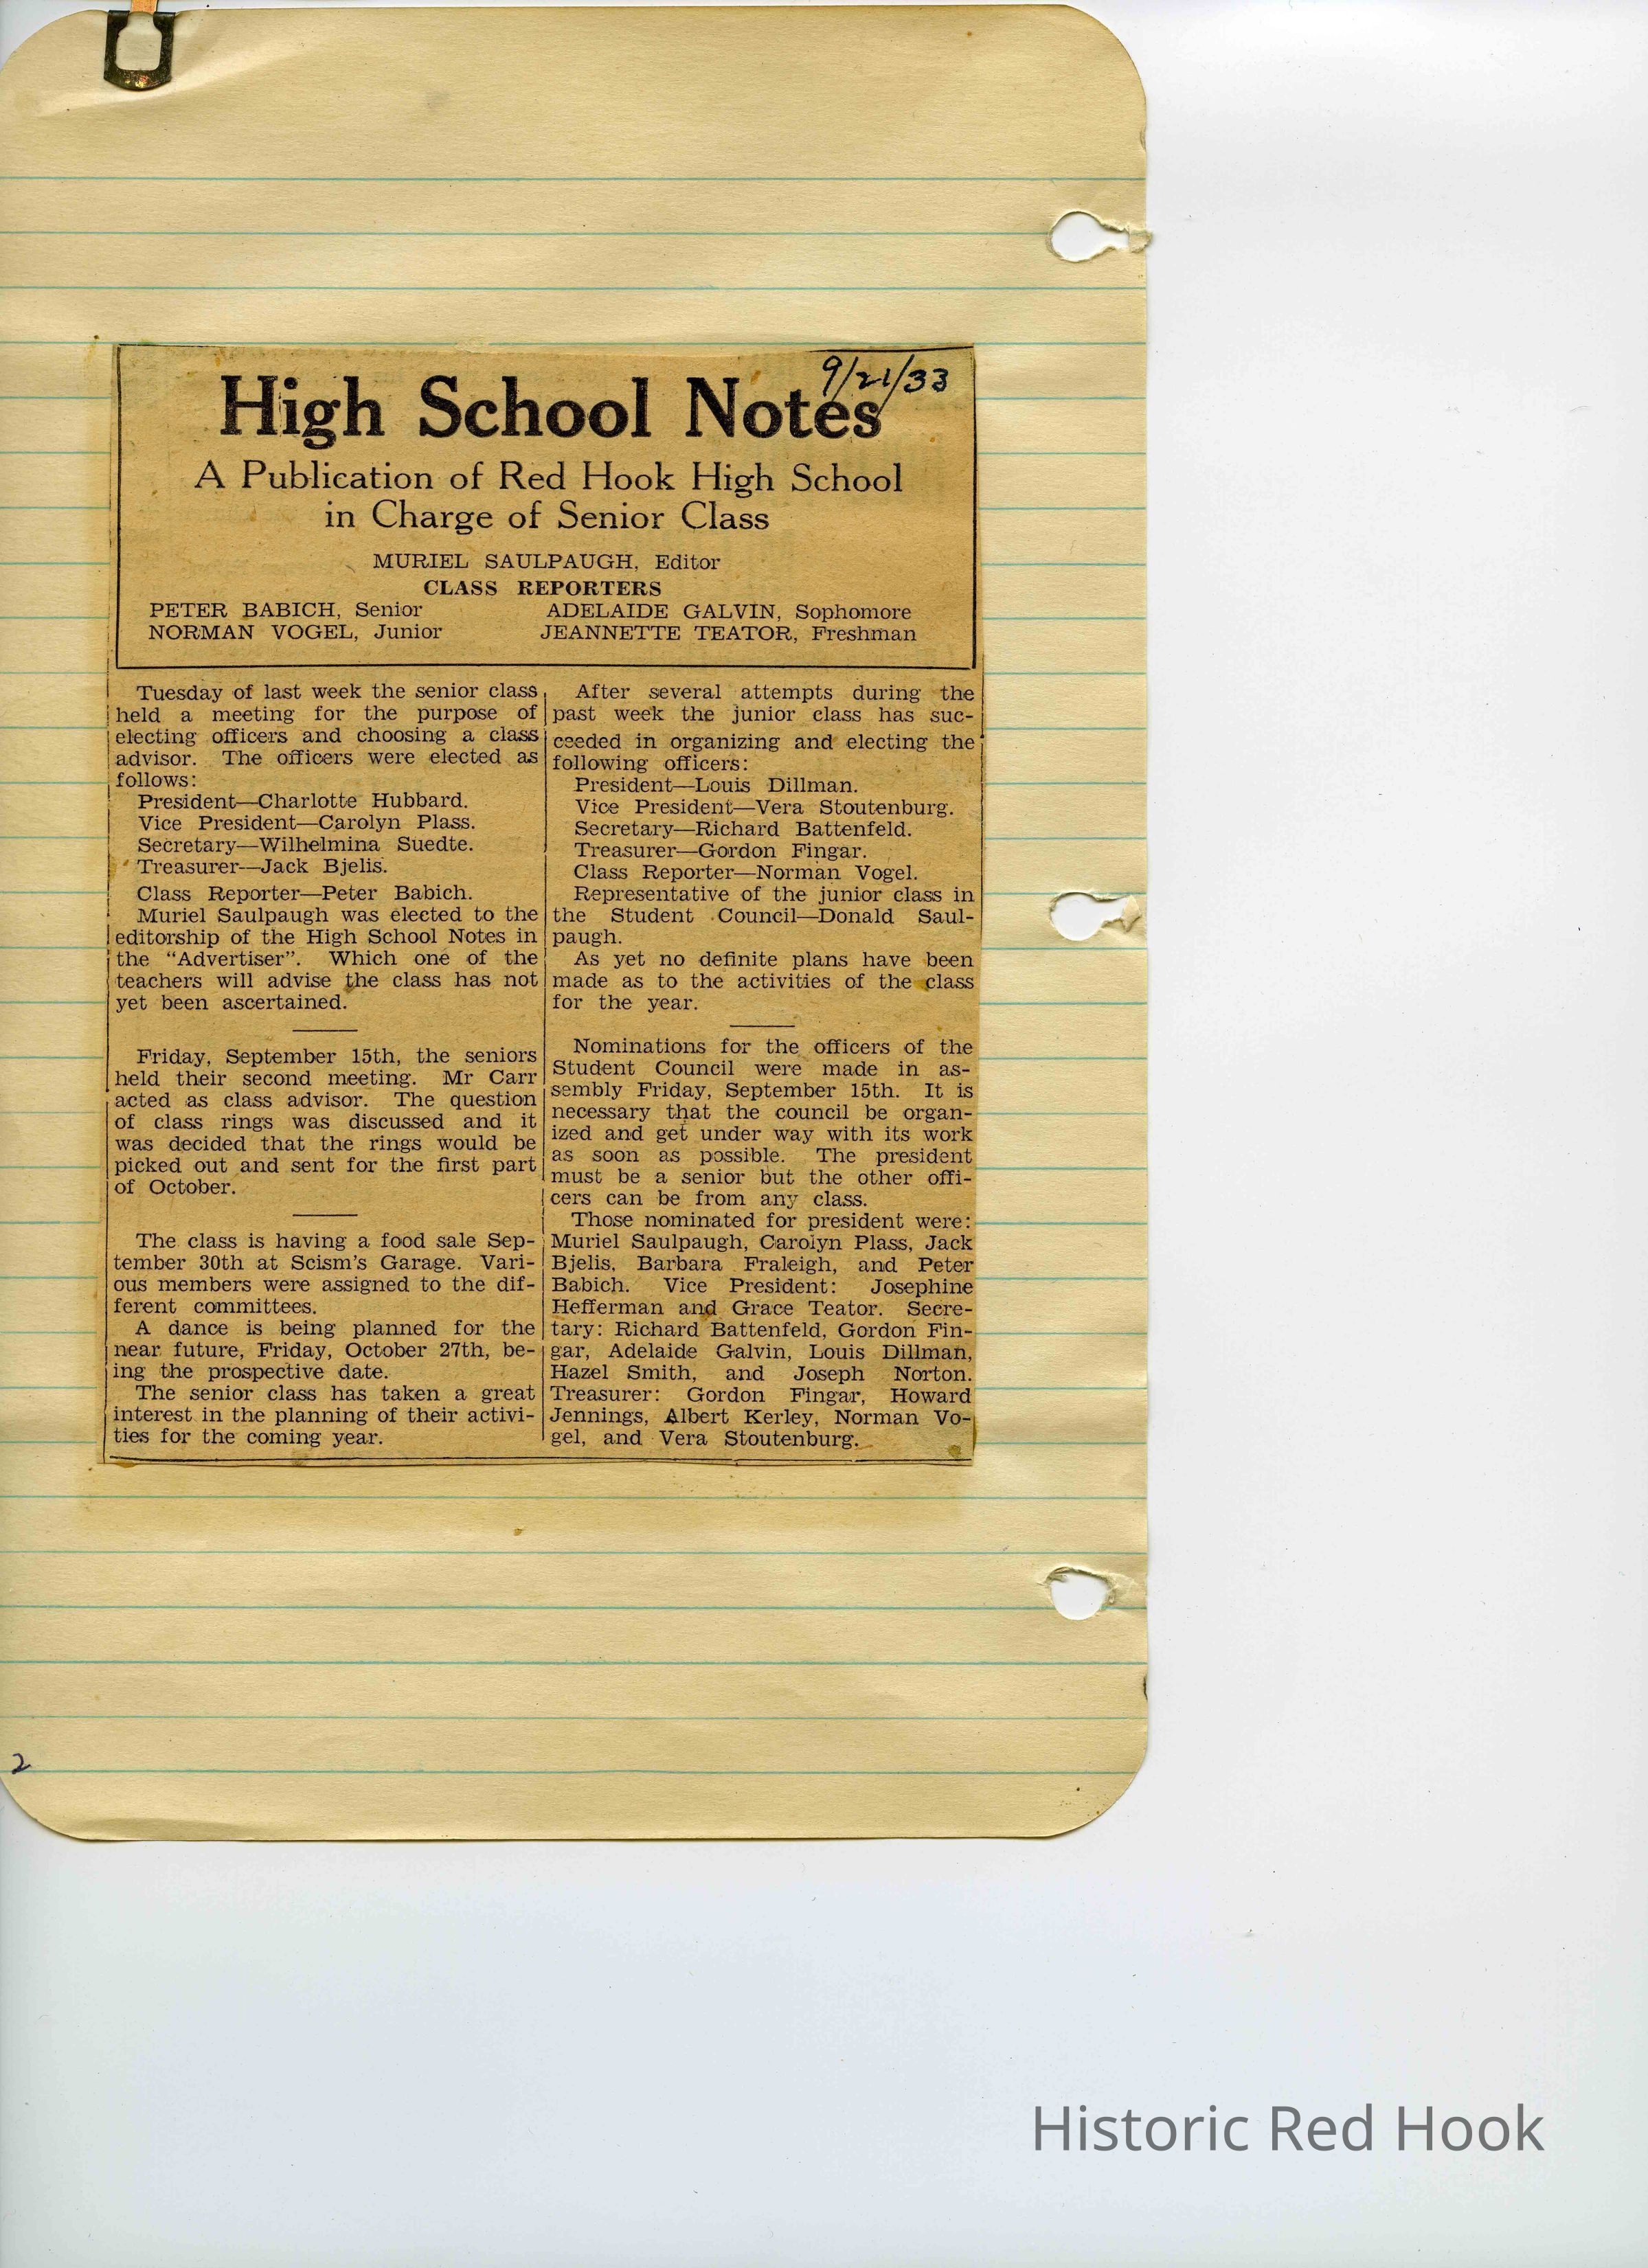 9/21/33
High School Notes
A Publication of Red Hook High School
in Charge of Senior Class
MURIEL SAULPAUGH, Editor
CLASS REPORTERS
PETER BABICH, Senior
NORMAN VOGEL, Junior
ADELAIDE GALVIN, Sophomore
JEANNETTE TEATOR, Freshman
Tuesday of last week the senior class
held a meeting for the purpose of
electing officers and choosing a class
advisor. The officers were elected as
follows:
President—Charlotte Hubbard.
Vice President—Carolyn Plass.
Secretary—Wilhelmina Suedte.
Treasurer—Jack Bjelis.
Class Reporter—Peter Babich.
Muriel Saulpaugh was elected to the
editorship of the High School Notes in
the "Advertiser". Which one of the
teachers will advise the class has not
yet been ascertained.
Friday, September 15th, the seniors
held their second meeting. Mr Carr
acted as class advisor. The question
of class rings was discussed and it
was decided that the rings would be
picked out and sent for the first part
of October.
The class is having a food sale Sep-
tember 30th at Scism's Garage. Vari-
ous members were assigned to the dif-
ferent committees.
A dance is being planned for the
near future, Friday, October 27th, be-
ing the prospective date.
The senior class has taken a great
interest in the planning of their activi-
ties for the coming year.
After several attempts during the
past week the junior class has suc-
ceeded in organizing and electing the
following officers:
President—Louis Dillman.
Vice President—Vera Stoutenburg.
Secretary—Richard Battenfeld.
Treasurer—Gordon Fingar.
Class Reporter—Norman Vogel.
Representative of the junior class in
the Student Council—Donald Saul-
paugh.
As yet no definite plans have been
made as to the activities of the class
for the year.
Nominations for the officers of the
Student Council were made in as-
sembly Friday, September 15th. It is
necessary that the council be organ-
ized and get under way with its work
as soon as possible. The president
must be a senior but the other offi-
cers can be from any class.
Those nominated for president were:
Muriel Saulpaugh, Carolyn Plass, Jack
Bjelis, Barbara Fraleigh, and Peter
Babich. Vice President: Josephine
Hefferman and Grace Teator. Secre-
tary: Richard Battenfeld, Gordon Fin-
gar, Adelaide Galvin, Louis Dillman,
Hazel Smith, and Joseph Norton.
Treasurer: Gordon Fingar, Howard
Jennings, Albert Kerley, Norman Vo-
gel, and Vera Stoutenburg.
2
Historic Red Hook